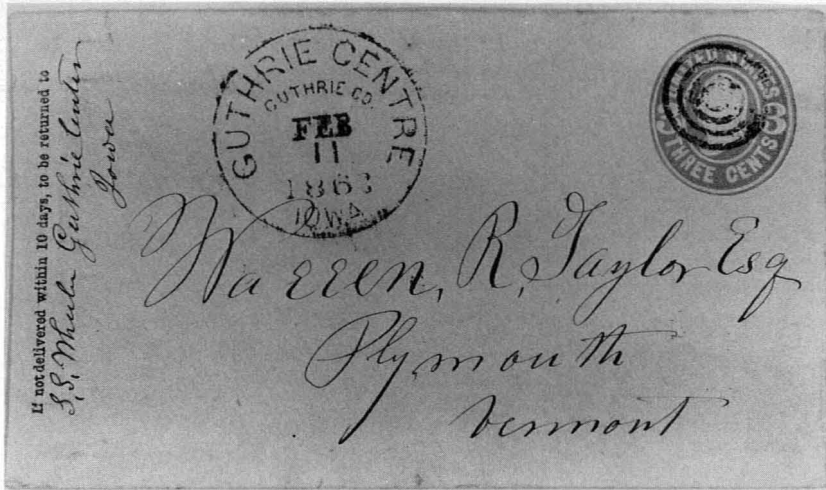 If not delivered within 10 days, to be returned to
S. S. Guthrie Center
Iowa
GUTHRIE CENTRE
GUTHRIE CO.
FEB
11
IOWA
UNITED STATES
3 3
THREE CENTS
Warren, R, Taylor Esq
Plymouth
Vermont